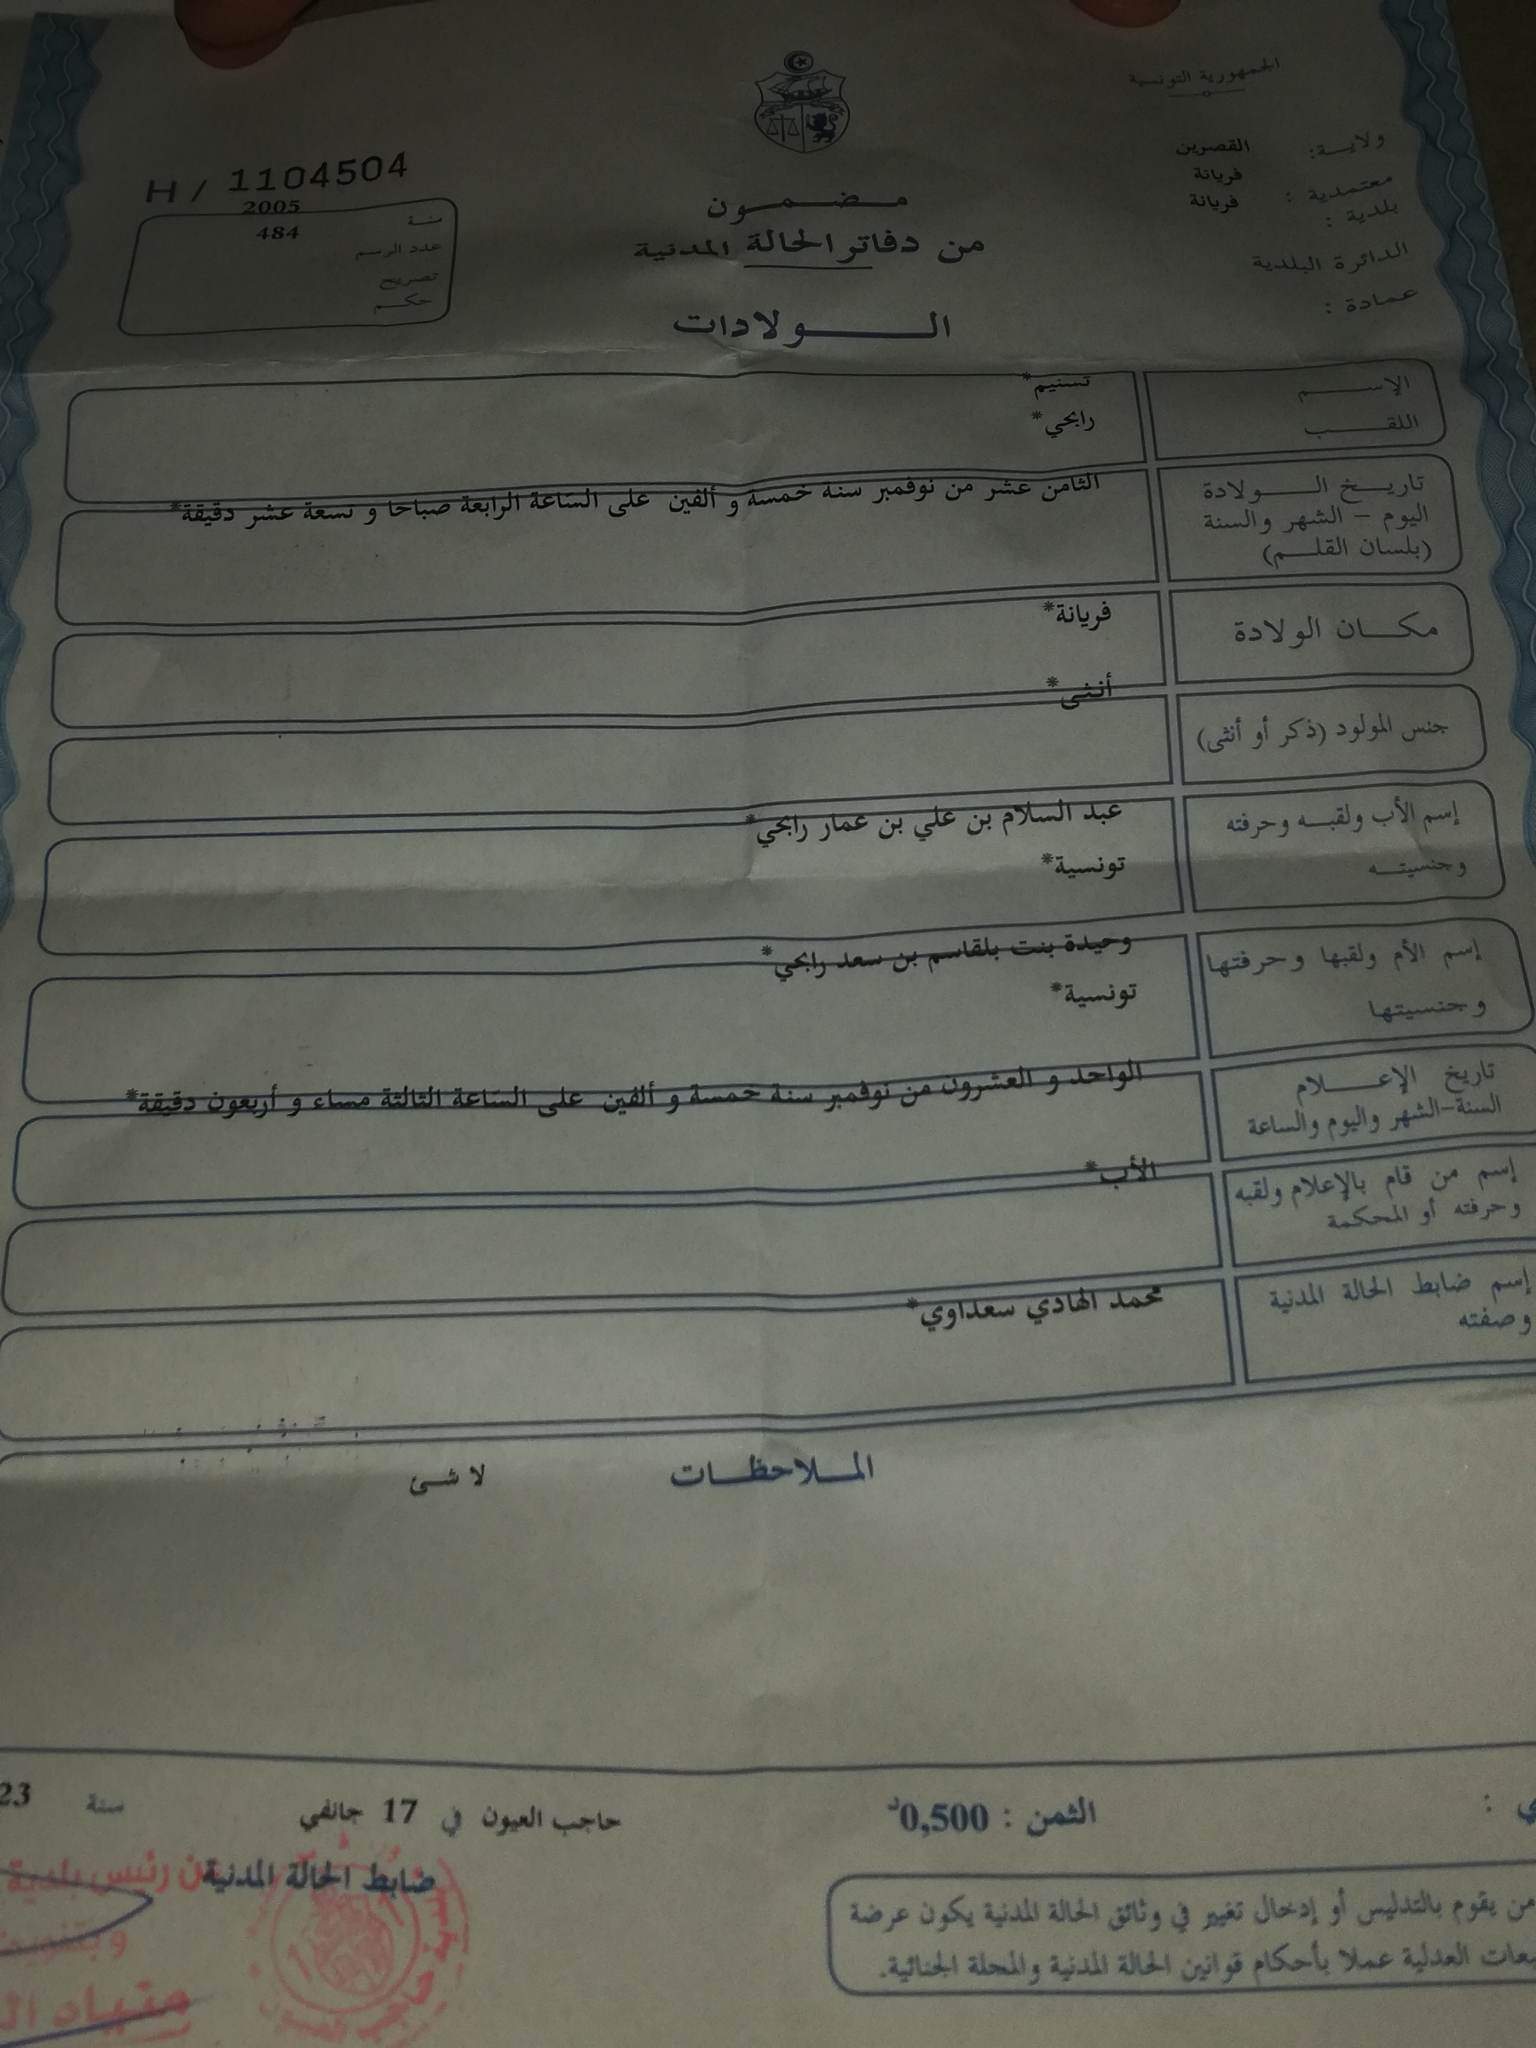 الجمهورية التونسية
ولاية: القصرين
معتمدية : فريانة
بلدية : فريانة
الدائرة البلدية
عمادة :
مضمون
من دفاتر الحالة المدنية
الولادات
H / 1104504
سنة 2005
عدد الرسم 484
تصريح
حكم
الإسم تسنيم*
اللقب رابحي*
تاريخ الولادة
اليوم - الشهر والسنة
(بلسان القلم)
الثامن عشر من نوفمبر سنة خمسة و ألفين على الساعة الرابعة صباحا و تسعة عشر دقيقة*
مكان الولادة فريانة*
جنس المولود (ذكر أو أنثى) أنثى*
إسم الأب ولقبه وحرفته عبد السلام بن علي بن عمار رابحي*
وجنسيته تونسية*
إسم الأم ولقبها وحرفتها وحيدة بنت بلقاسم بن سعد رابحي*
وجنسيتها تونسية*
تاريخ الإعلام
السنة-الشهر واليوم والساعة
الواحد و العشرون من نوفمبر سنة خمسة و ألفين على الساعة الثالثة مساء و أربعون دقيقة*
إسم من قام بالإعلام ولقبه
وحرفته أو المحكمة
الأب*
إسم ضابط الحالة المدنية
وصفته
محمد الهادي سعداوي*
الملاحظات لا شئ
الثمن : 0,500د
حاجب العيون في 17 جانفي سنة 23
ضابط الحالة المدنية
عن رئيس بلدية
وبتفويض
من يقوم بالتدليس أو إدخال تغيير في وثائق الحالة المدنية يكون عرضة
العدلية عملا بأحكام قوانين الحالة المدنية والمجلة الجنائية.